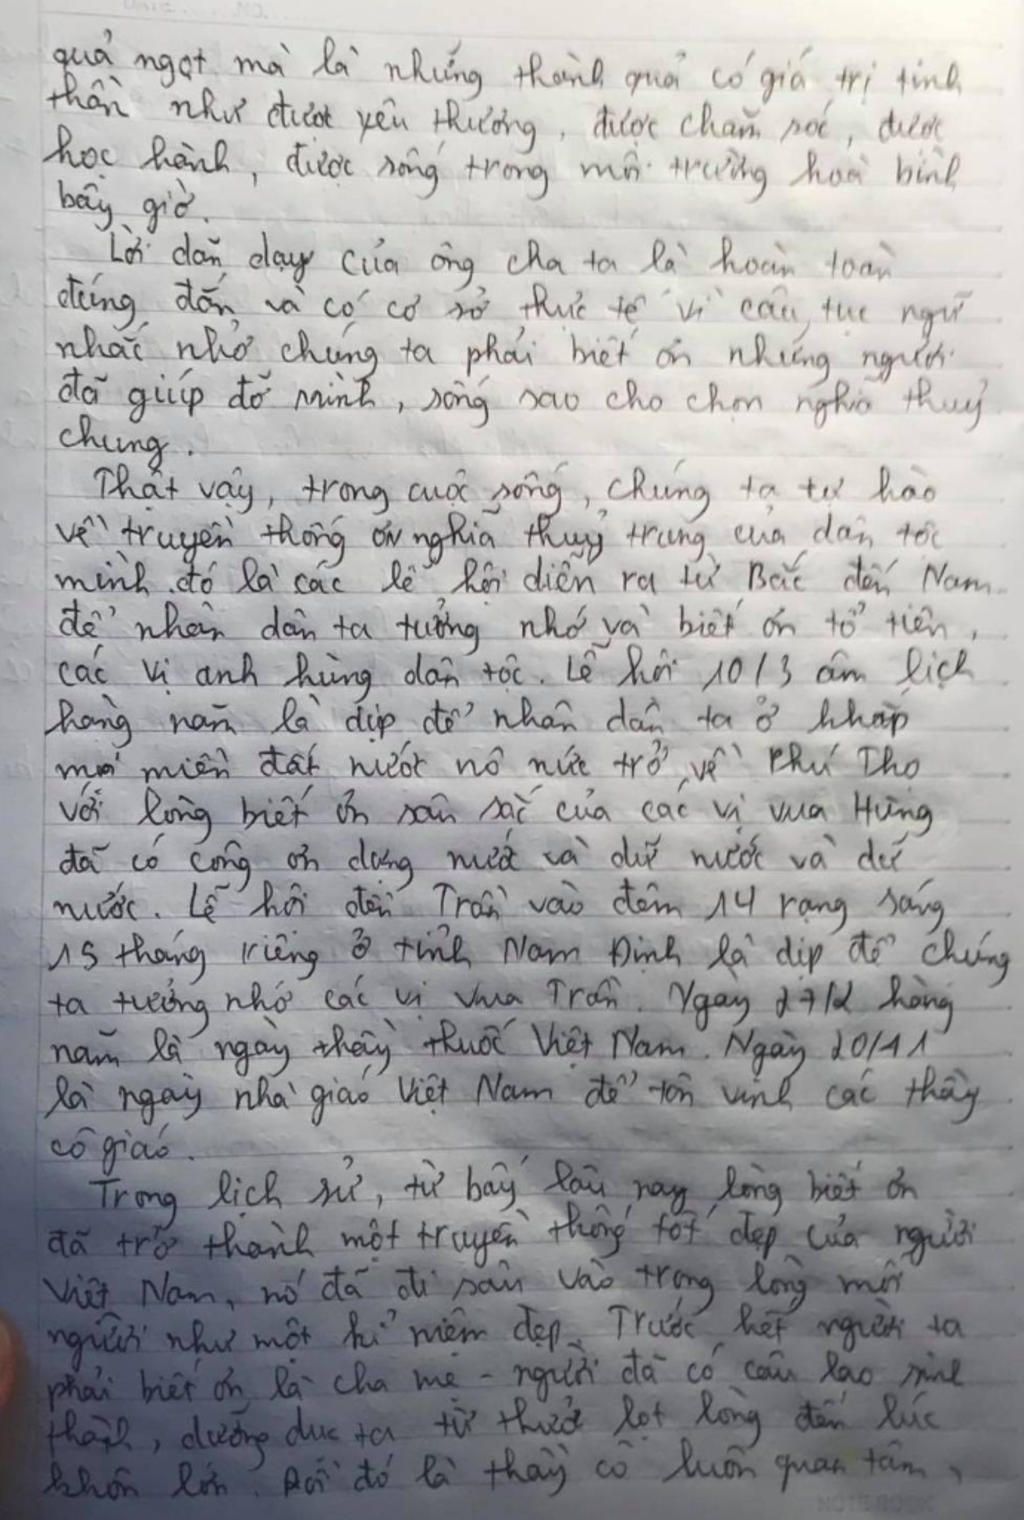 quả ngọt mà là những thành quả có giá trị tinh
thần như được yêu thương, được chăm sóc, được
học hành, được sống trong môi trường hoà bình
bây giờ.
Lời dăn dạy của ông cha ta là hoàn toàn
đúng đắn và có cơ sở thực tế vì câu tục ngữ
nhắc nhở chúng ta phải biết ơn những người
đã giúp đỡ mình, sống sao cho chọn nghĩa thuỷ
chung.
Thật vậy, trong cuộc sống, chúng ta tự hào
về truyền thống ơn nghĩa thuỷ trung của dân tộc
mình. đó là các lễ hội diễn ra từ Bắc đến Nam
để nhân dân ta tưởng nhớ và biết ơn tổ tiên,
các vị anh hùng dân tộc. Lễ hội 10/3 âm lịch
hàng năm là dịp để nhân dân ta ở khắp
mọi miền đất nước nô nức trở về Phú Thọ
với lòng biết ơn sâu sắc của các vị vua Hùng
đã có công ơn dựng nước và dữ nước và dữ
nước. Lễ hội đền Trần vào đêm 14 rạng sáng
15 tháng riêng ở tỉnh Nam Định là dịp để chúng
ta tưởng nhớ các vị vua Trần. Ngày 27/2 hàng
năm là ngày thầy thuốc Việt Nam. Ngày 20/11
là ngày nhà giáo Việt Nam để tôn vinh các thầy
cô giáo.
Trong lịch sử, từ bấy lâu nay lòng biết ơn
đã trở thành một truyền thống tốt đẹp của người
Việt Nam, nó đã đi sâu vào trong lòng mỗi
người như một kỉ niệm đẹp. Trước hết người ta
phải biết ơn là cha mẹ - người đã có câu lao sinh
thành, dưỡng dục ta từ thuở lọt lòng đến lúc
khôn lớn. Rồi đó là thầy cô luôn quan tâm,